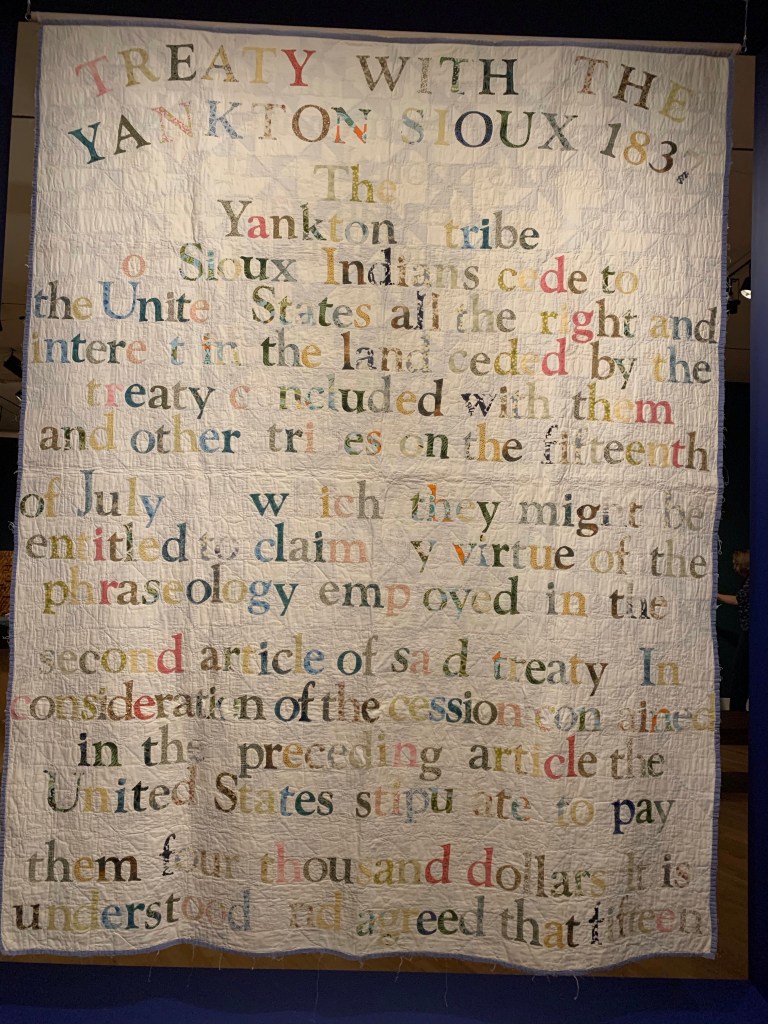 TREATY WITH THE
YANKTON SIOUX 1837
The
Yankton tribe
o Sioux Indians cede to
the Unite States all the right and
intere t in the land ceded by the
treaty c ncluded with them
and other tri es on the fifteenth
of July w ich they might be
entitled to claim y virtue of the
phraseology emp oyed in the
second article of sa d treaty In
consideration of the cession con ained
in the preceding article the
United States stipu ate to pay
them four thousand dollars it is
understood nd agreed that fifteen